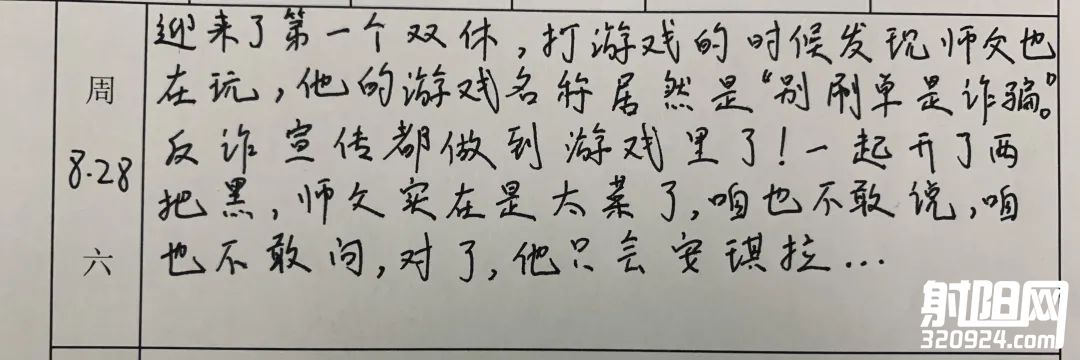 周
8.28
六
迎来了第一个双休，打游戏的时候发现师父也
在玩，他的游戏名称居然是“别刷单是诈骗”。
反诈宣传都做到游戏里了！一起开了两
把黑，师父实在是太菜了，咱也不敢说，咱
也不敢问，对了，他只会安琪拉...
射阳网
320924.com